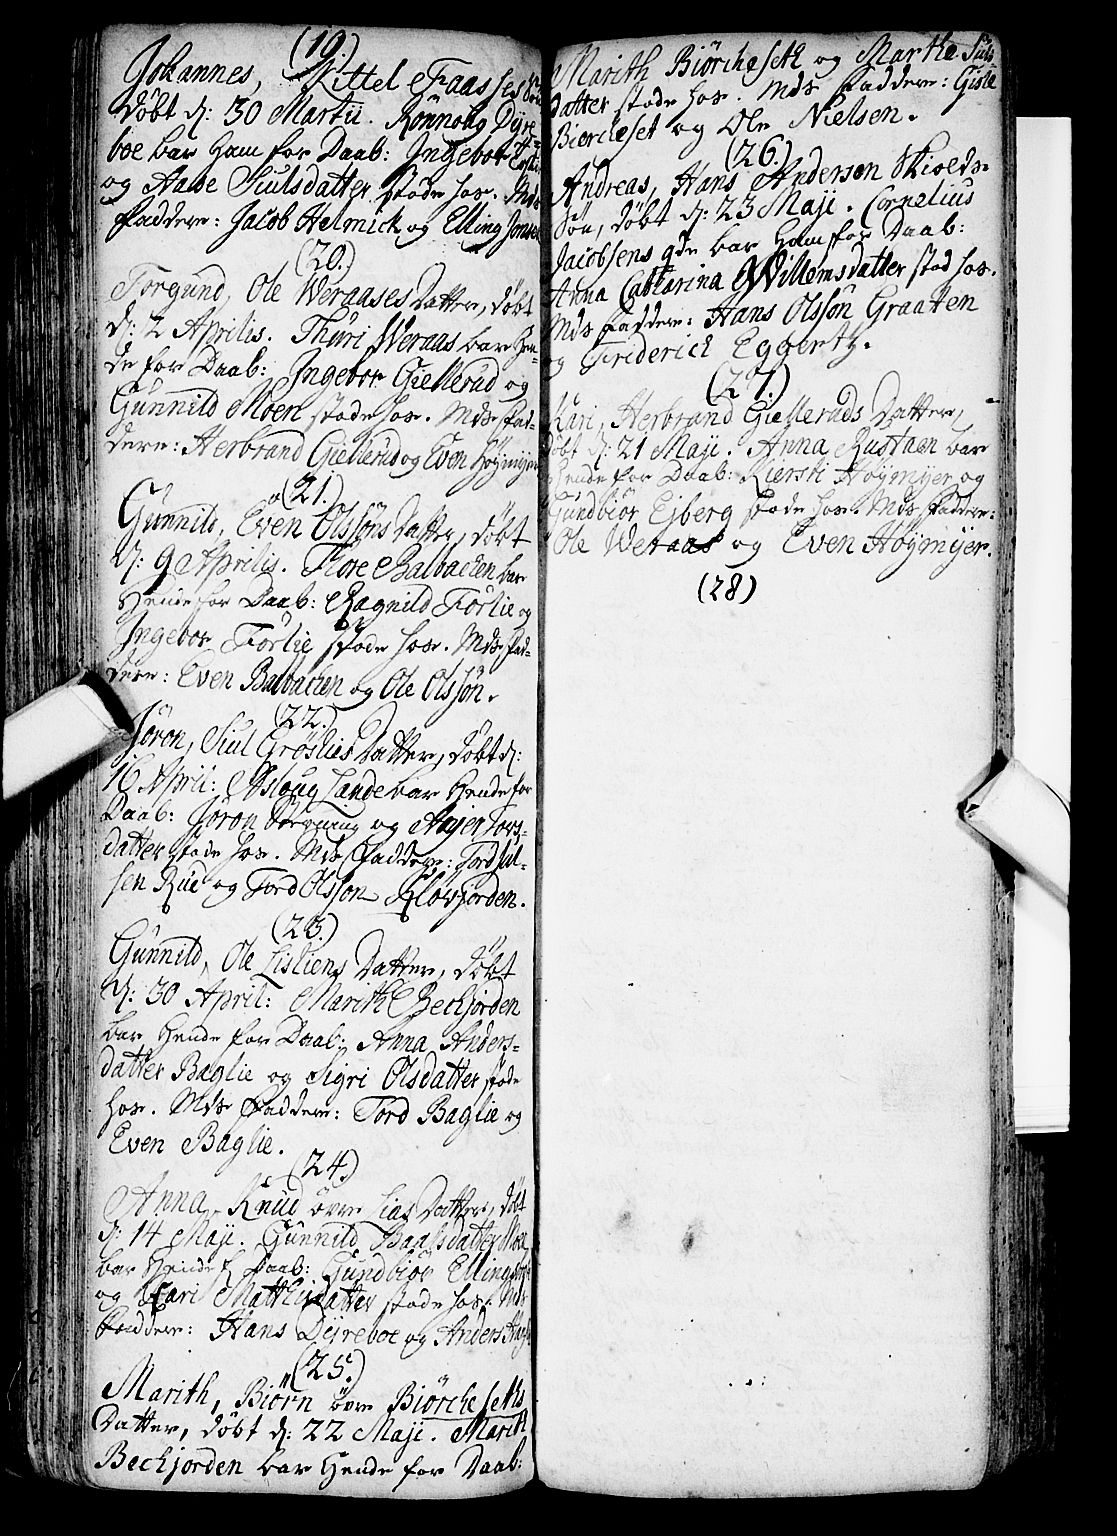 (19.)
Johannes, Kittel Traasses Søn
døbt d: 30 Martii. Rønnoug Dyre-
boe bar Ham for Daab: Ingebor
og Aase Siulsdatter stode hos. Mds
Faddere: Jacob Helmick og Elling Jonsen
(20.)
Torgund, Ole Weraases Datter, døbt
d: 2 Aprilis. Thuri Weraas bar Hen-
de for Daab: Ingebor Giellerud og
Gunnild Moen stode hos. Mds Fad-
dere: Herbrand Giellerud og Even Høymyer
(21.)
Gunnild, Even Olssøns Datter, døbt
d: 9 Aprilis. Tore Balbachen bar
Hende for Daab: Ragnild Førlie og
Ingebor Førlie stode hos. Mds Fad-
dere: Even Balbachen og Ole Olssøn.
(22.)
Jøron, Siul Grøslies Datter, døbt d:
16 April: Asloug Lande bar Hende for
Daab: Jøron og Anjer Tors-
datter stode hos. Mds Faddere: Tord Siul-
sen Rue og Tord Olsson Kløvjorden.
(23.)
Gunnild, Ole Lisliens Datter, døbt
d: 30 April: Marith Beckjorden
bar Hende for Daab: Anna Anders-
datter Baglie og Sigri Olsdatter stode
hos. Mds Faddere: Tord Baglie og
Even Baglie.
(24.)
Anna, Knud øvre Lias Datter, døbt
d: 14 Maji. Gunnild Baalsdatter Moen
bar Hende f. Daab: Gundbiør Ellings
og Kari Matthisdatter stode hos. Mds
Faddere: Hans Dyreboe og Anders
(25.)
Marith, Biørn øvre Biørcheseths
Datter, døbt d: 22 Maji. Marith
Beckjorden bar Hende for Daab:
Marith Biørcheseth og Marthe Siuls-
datter stode hos. Mds Faddere: Gisle
Biørcheset og Ole Nielsen.
(26.)
Andreas, Hans Andersen Skioeds
Søn, døbt d: 23 Maji. Cornelius
Jacobsens qde bar Ham for Daab:
Anna Catharina Willemsdatter stod hos.
Mds Faddere: Hans Olssøn Graaten
og Friderich Eggertz.
(27.)
Kari, Herbrand Gielleruds Datter,
døbt d: 21 Maji. Anna Rustaen bar
Hende for Daab: Kiersti Høymyer og
Gundbiør Ejberg stode hos. Mds Faddere:
Ole Weraas og Even Høymyer.
(28)